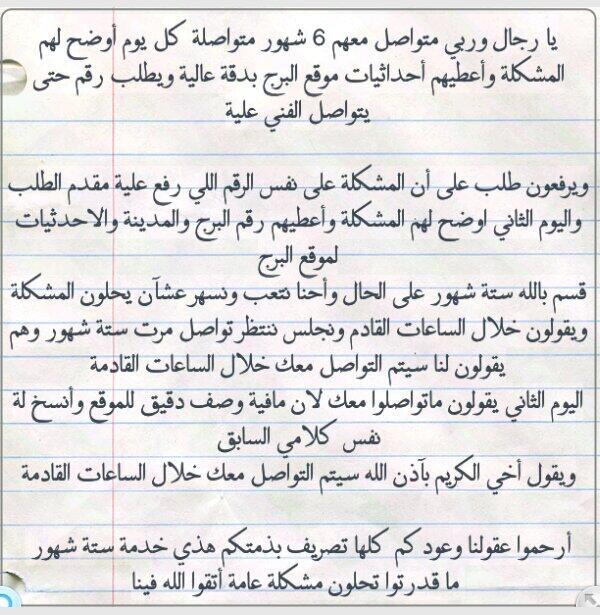 يا رجال وربي متواصل معهم 6 شهور متواصلة كل يوم أوضح لهم
المشكلة وأعطيهم أحداثيات موقع البرج بدقة عالية ويطلب رقم حتى
يتواصل الفني علية
ويرفعون طلب على أن المشكلة على نفس الرقم اللي رفع علية مقدم الطلب
واليوم الثاني اوضح لهم المشكلة وأعطيهم رقم البرج والمدينة والاحدثيات
لموقع البرج
قسم بالله ستة شهور على الحال وأحنا نتعب ونسهر عشآن يحلون المشكلة
ويقولون خلال الساعات القادم ونجلس ننتظر تواصل مرت ستة شهور وهم
يقولون لنا سيتم التواصل معك خلال الساعات القادمة
اليوم الثاني يقولون ماتواصلوا معك لان مافية وصف دقيق للموقع وأنسخ لة
نفس كلامي السابق
ويقول أخي الكريم بآذن الله سيتم التواصل معك خلال الساعات القادمة
أرحموا عقولنا وعودكم كلها تصريف بذمتكم هذي خدمة ستة شهور
ما قدرتوا تحلون مشكلة عامة أتقوا الله فينا